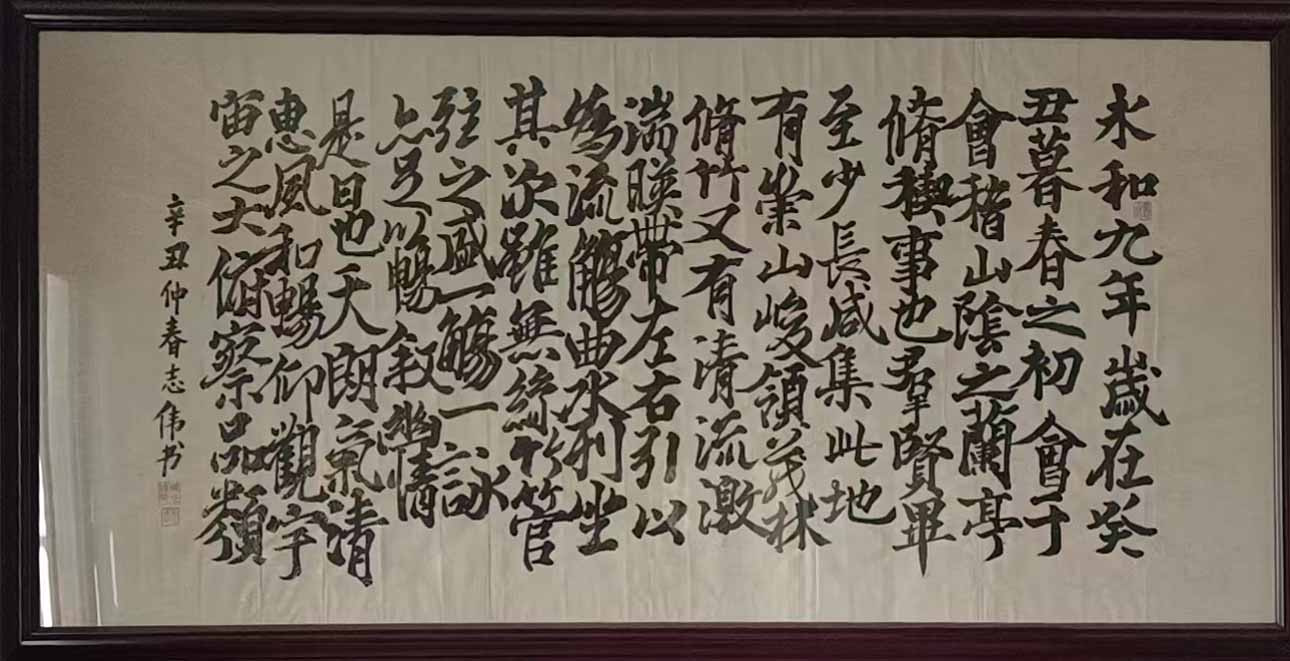 永和九年歲在癸
丑暮春之初會于
會稽山陰之蘭亭
脩禊事也羣賢畢
至少長咸集此地
有崇山峻領茂林
脩竹又有清流激
湍暎帶左右引以
為流觴曲水列坐
其次雖無絲竹管
弦之盛一觴一詠
亦足以暢叙幽情
是日也天朗氣清
惠風和暢仰觀宇
宙之大俯察品類
辛丑仲春志伟书